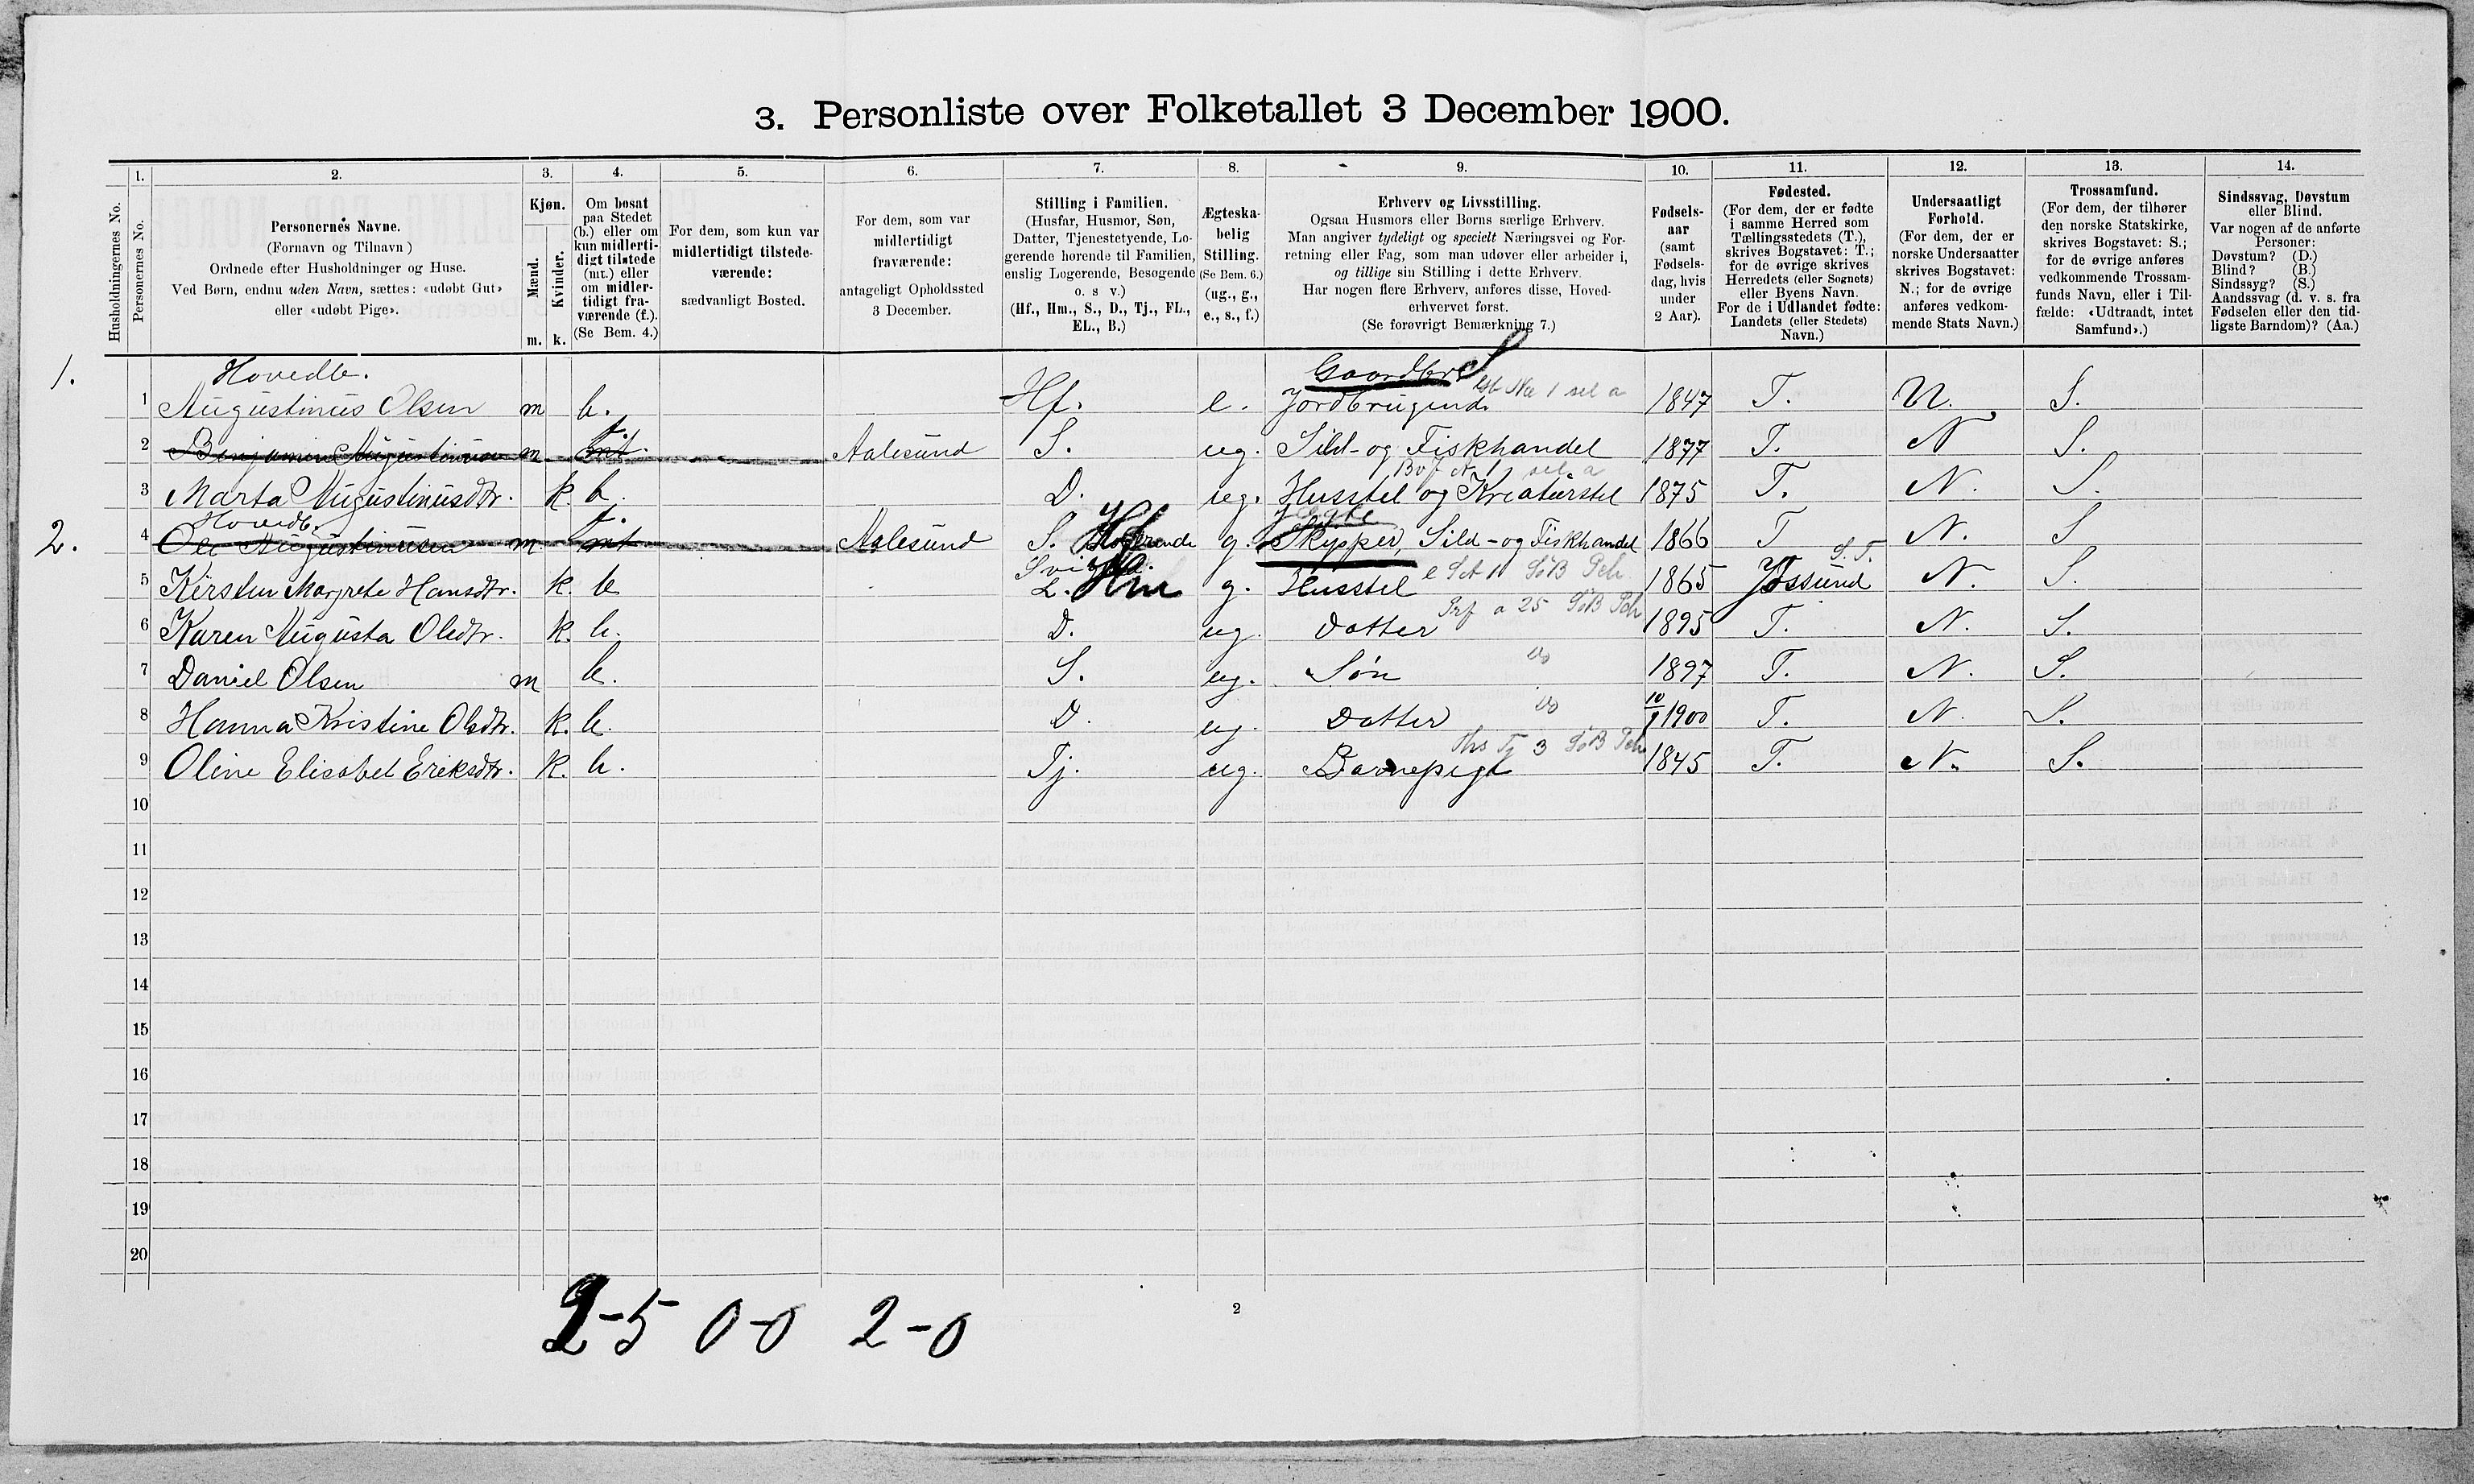 3. Personliste over Folketallet 3 December 1900.
1. 2. 3. 4. 5. 6. 7. 8. 9. 10. 11. 12. 13. 14.
Husholdningernes No.
Personernes No.
Personernes Navne.
(Fornavn og Tilnavn)
Ordnede efter Husholdninger og Huse.
Ved Børn, endnu uden Navn, sættes: «udøbt Gut»
eller «udøbt Pige».
Kjøn.
Mænd.
Kvinder.
m. k.
Om bosat
paa Stedet
(b.) eller om
kun midlerti-
digt tilstede
(mt.) eller
om midler-
tidigt fra-
værende (f.).
(Se Bem. 4.)
For dem, som kun var
midlertidigt tilstede-
værende:
sædvanligt Bosted.
For dem, som var
midlertidigt
fraværende:
antageligt Opholdssted
3 December.
Stilling i Familien.
(Husfar, Husmor, Søn,
Datter, Tjenestetyende, Lo-
gerende hørende til Familien,
enslig Logerende, Besøgende
o. s v.)
(Hf., Hm., S., D., Tj., FL.,
EL., B.)
Ægteska-
belig
Stilling.
(Se Bem. 6.)
(ug., g.,
e., s., f.)
Erhverv og Livsstilling.
Ogsaa Husmors eller Børns særlige Erhverv.
Man angiver tydeligt og specielt Næringsvei og For-
retning eller Fag, som man udøver eller arbeider i,
og tillige sin Stilling i dette Erhverv.
Har nogen flere Erhverv, anføres disse, Hoved-
erhvervet først.
(Se forøvrigt Bemærkning 7.)
Fødsels-
aar
(samt
Fødsels-
dag, hvis
under
2 Aar).
Fødested.
(For dem, der er fødte
i samme Herred som
Tællingsstedets (T.),
skrives Bogstavet: T.;
for de øvrige skrives
Herredets (eller Sognets)
eller Byens Navn.
For de i Udlandet fødte:
Landets (eller Stedets)
Navn.)
Undersaatligt
Forhold.
(For dem, der er
norske Undersaatter
skrives Bogstavet:
N.; for de øvrige
anføres vedkom-
mende Stats Navn.)
Trossamfund.
(For dem, der tilhører
den norske Statskirke,
skrives Bogstavet: S.;
for de øvrige anføres
vedkommende Trossam-
funds Navn, eller i Til-
fælde: «Udtraadt, intet
Samfund».)
Sindssvag, Døvstum
eller Blind.
Var nogen af de anførte
Personer:
Døvstum? (D.)
Blind? (B.)
Sindssyg? (S.)
Aandssvag (d. v. s. fra
Fødselen eller den tid-
ligste Barndom)? (Aa.)
1. Hovedb. Gaardbr S
1 Augustinus Olsen m b. Hf. e. Jordbrugend. 1847 T. N. S.
f.
2 Benjamin Augustinusen m mt. Aalesund S. ug. Sild- og Fiskhandel 1877 T. N S.
3 Marta Augustinusdtr. k. b. D. ug. Husstel og Kreaturstel 1875 T. N. S.
2. Hovedb. f. Jægte
4 Ole Augustinusen m mt Aalesund S. Hf g. Skypper, Sild- og Fiskhandel 1866 T N. S
S. T.
5 Kirsten Margrete Hansdtr. k. b Hm g. Husstel 1865 Jøssund N. S.
6 Karen Augusta Olsdtr. k. b. D. ug. Datter 1895 T. N. S.
7 Daniel Olsen m b. S. ug. Søn do 1897 T. N. S.
8 Hanna Kristine Olsdtr. k. b. D. ug. Datter do 10/9 1900 T. N. S.
9 Oline Elisabet Eriksdtr. k. b. Tj. ug. Barnepige 1845 T. N. S.
10
11
12
13
14
15
16
17
18
19
20
2-5 0-0 2-0
2